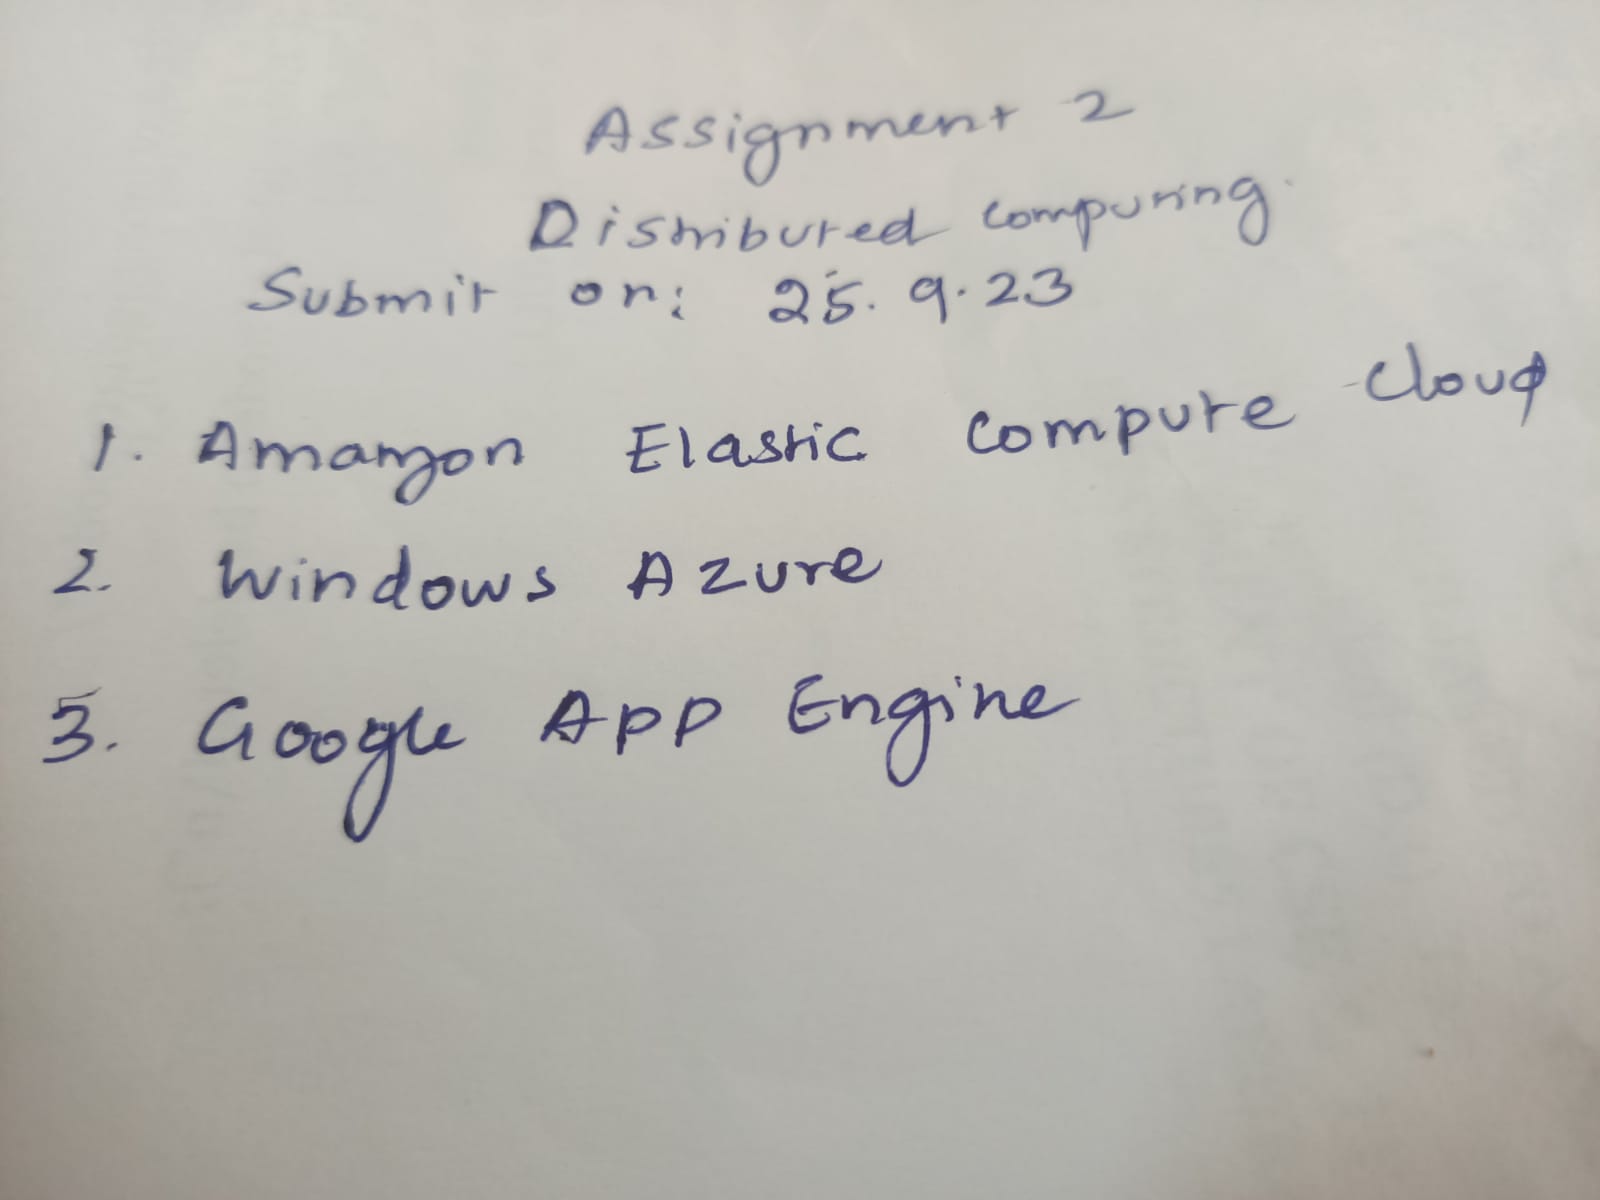 Assignment 2
Distributed computing.
Submit on: 25.9.23
1. Amazon Elastic Compute Cloud
2. Windows Azure
3. Google App Engine